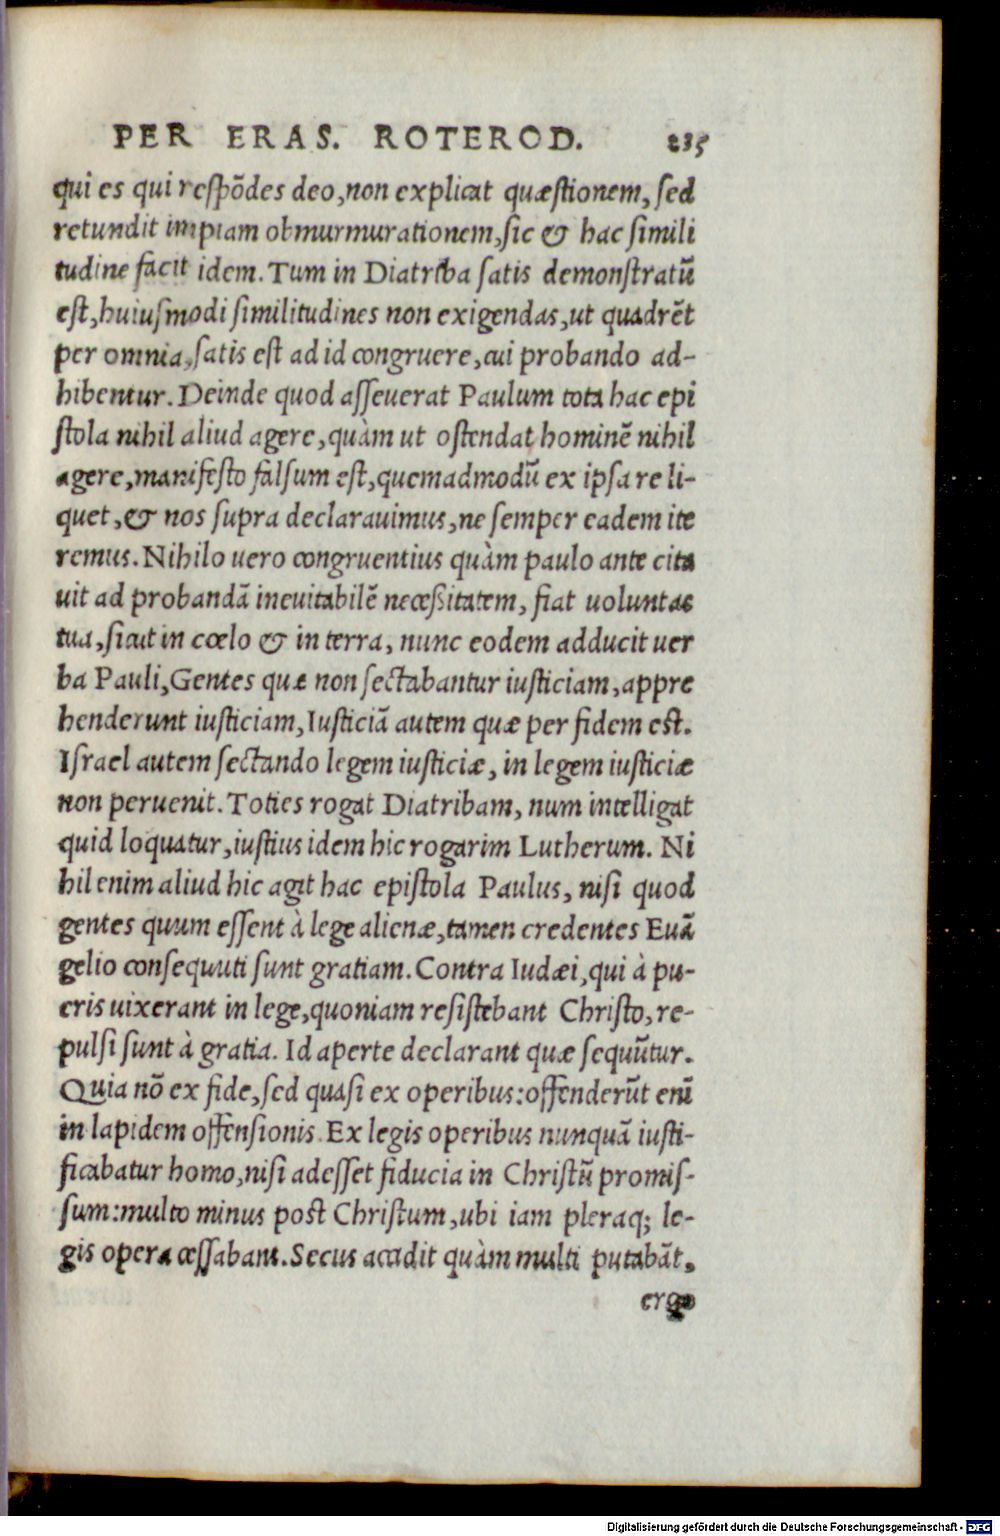 PER ERAS. ROTEROD. 235
qui es qui respõdes deo, non explicat quæstionem, sed
retundit impiam obmurmurationem, sic & hac simili
tudine facit idem. Tum in Diatriba satis demonstratũ
est, huiusmodi similitudines non exigendas, ut quadrẽt
per omnia, satis est ad id congruere, cui probando ad-
hibentur. Deinde quod asseuerat Paulum tota hac epi
stola nihil aliud agere, quàm ut ostendat hominẽ nihil
agere, manifesto falsum est, quemadmodũ ex ipsa re li-
quet, & nos supra declarauimus, ne semper eadem ite
remus. Nihilo uero congruentius quàm paulo ante cita
uit ad probandã ineuitabilẽ necessitatem, fiat uoluntas
tua, sicut in cœlo & in terra, nunc eodem adducit uer
ba Pauli, Gentes quæ non sectabantur iusticiam, appre
henderunt iusticiam, Iusticiã autem quæ per fidem est.
Israel autem sectando legem iusticiæ, in legem iusticiæ
non peruenit. Toties rogat Diatribam, num intelligat
quid loquatur, iustius idem hic rogarim Lutherum. Ni
hil enim aliud hic agit hac epistola Paulus, nisi quod
gentes quum essent à lege alienæ, tamen credentes Euã
gelio consequuti sunt gratiam. Contra Iudæi, qui à pu-
eris uixerant in lege, quoniam resistebant Christo, re-
pulsi sunt à gratia. Id aperte declarant quæ sequũtur.
Quia nõ ex fide, sed quasi ex operibus: offenderũt enĩ
in lapidem offensionis. Ex legis operibus nunquã iusti-
ficabatur homo, nisi adesset fiducia in Christũ promis-
sum: multo minus post Christum, ubi iam pleraq; le-
gis opera cessabant. Secus accidit quàm multi putabãt,
ergo
Digitalisierung gefördert durch die Deutsche Forschungsgemeinschaft - DFG